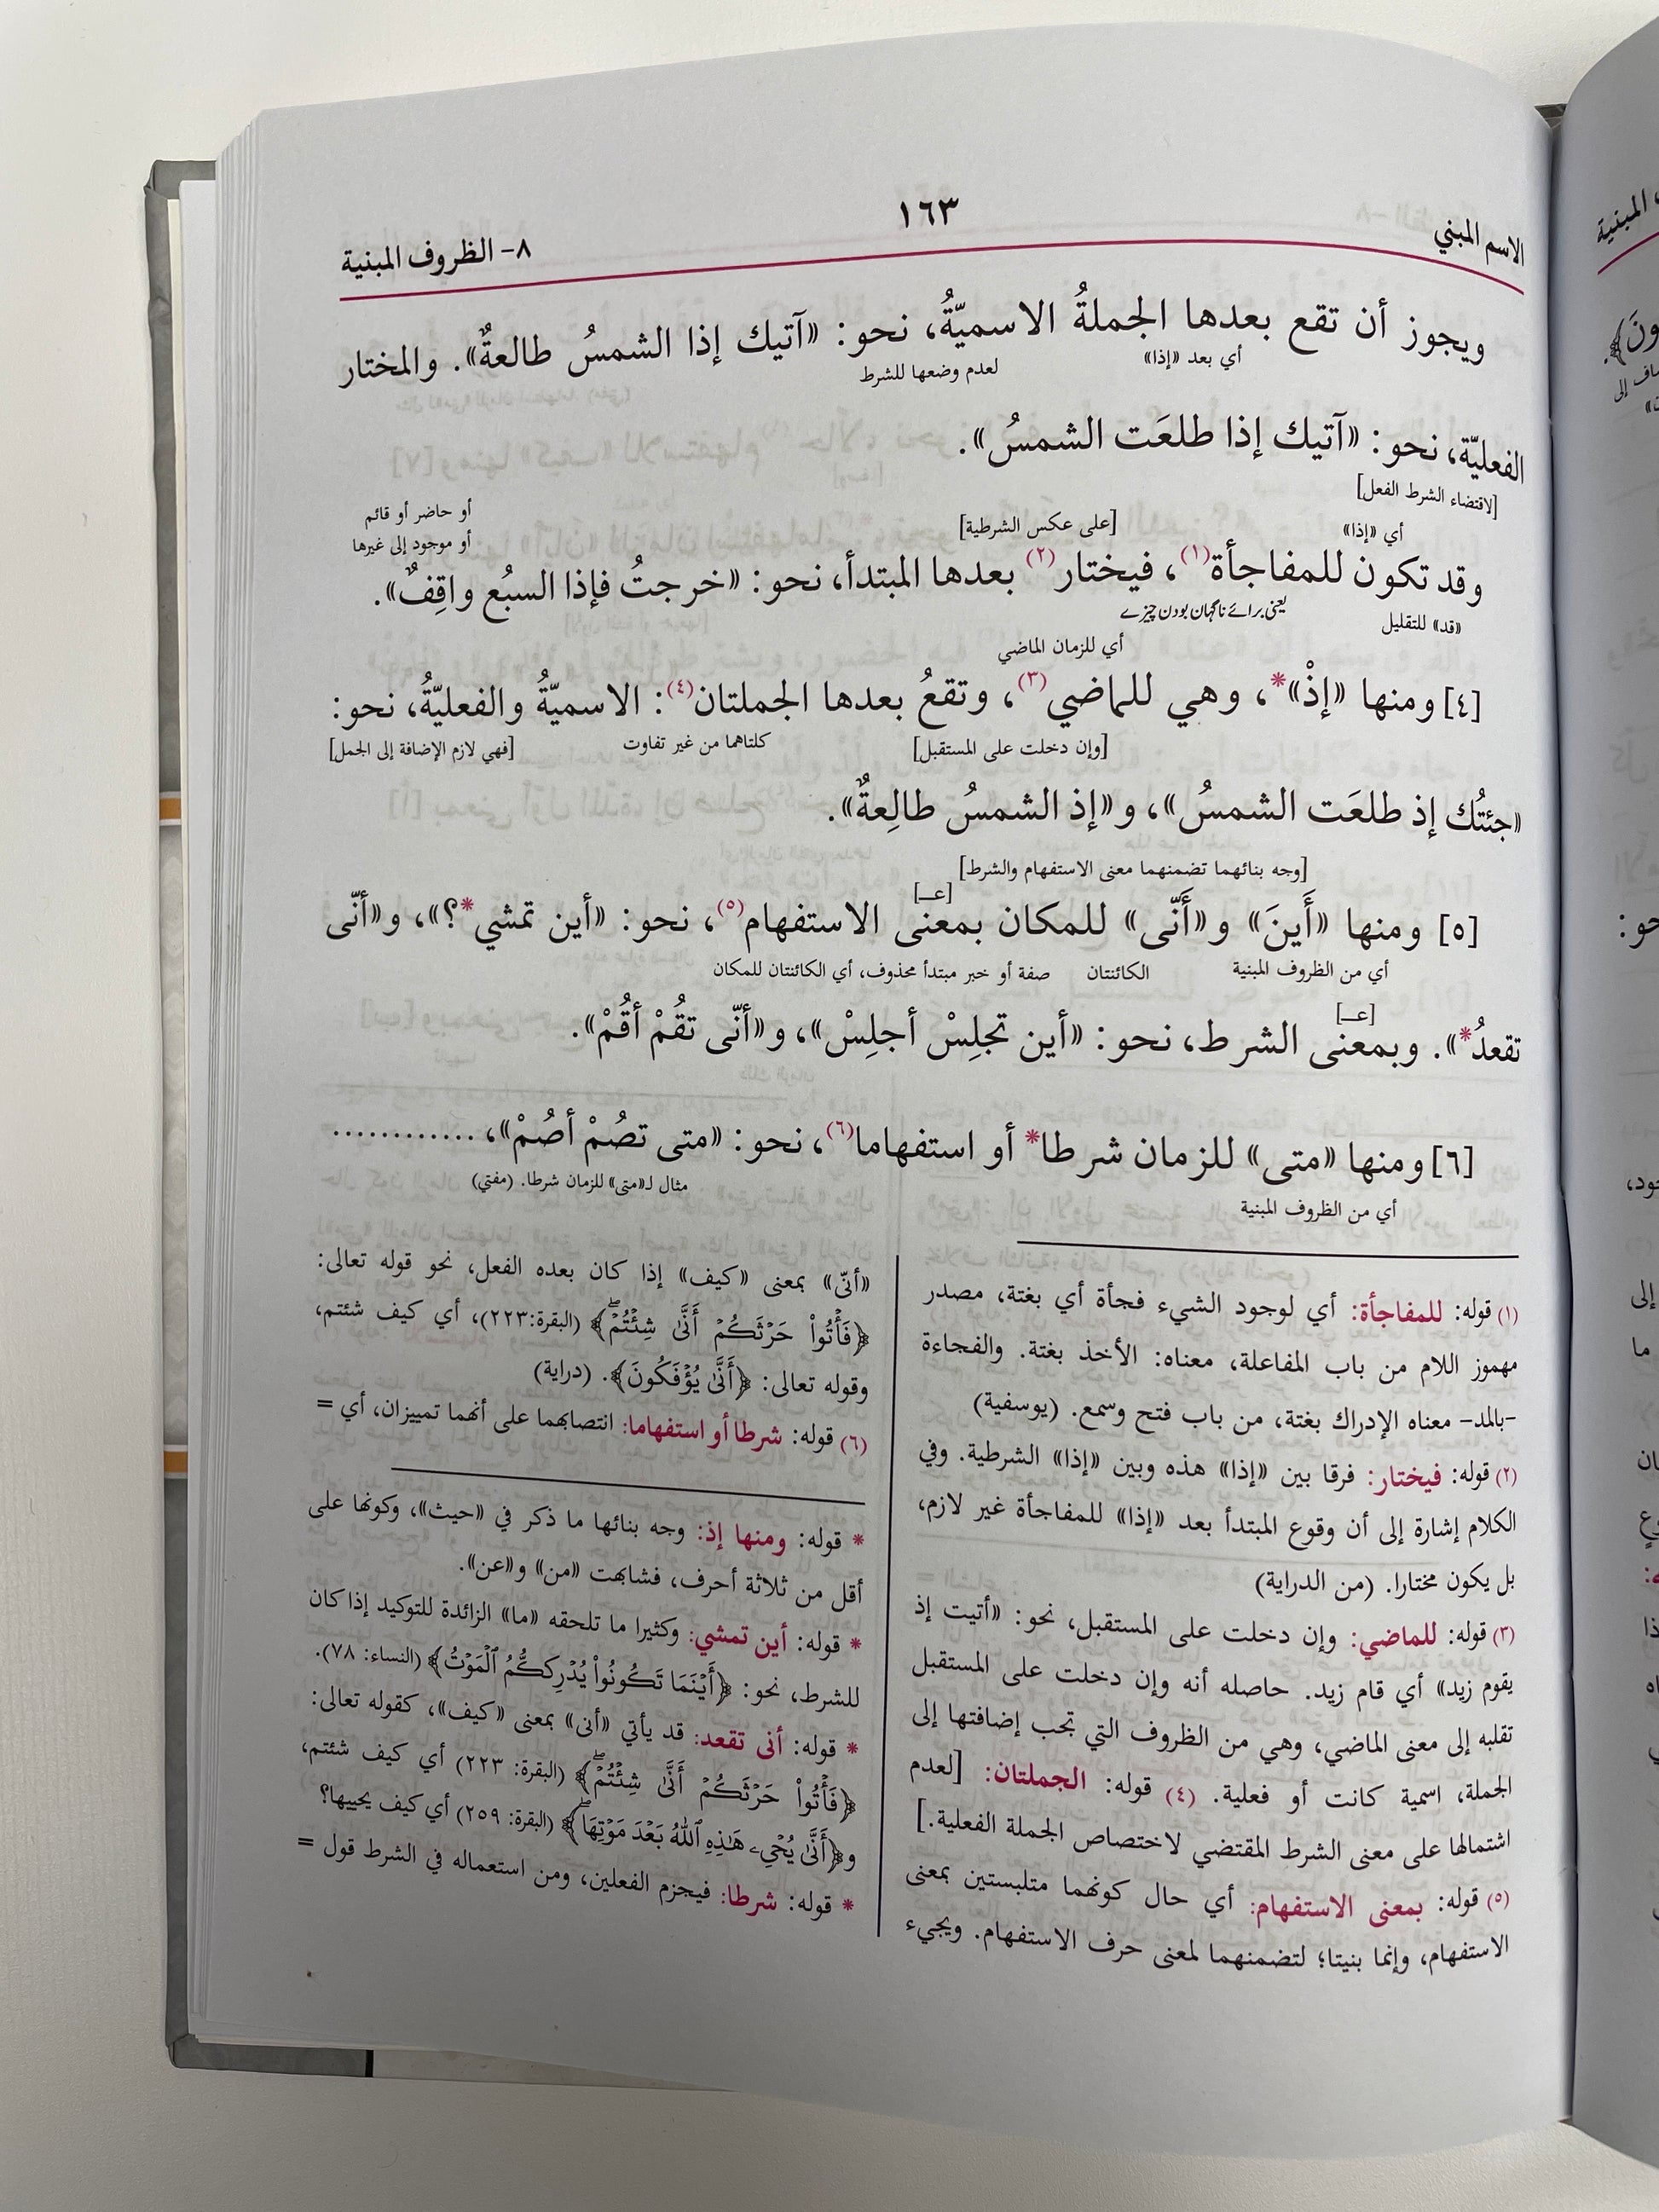 الاسم المبني
١٦٣
٨- الظروف المبنية
ويجوز أن تقع بعدها الجملةُ الاسميّةُ، نحو: «آتيك إذا الشمسُ طالعةٌ». والمختار
أي بعد «إذا»
لعدم وضعها للشرط
الفعليّة، نحو: «آتيك إذا طلعَت الشمسُ».
[لاقتضاء الشرط الفعل]
أي «إذا»
[على عكس الشرطية]
أو حاضر أو قائم
أو موجود إلى غيرها
وقد تكون للمفاجأة(١)، فيختار(٢) بعدها المبتدأ، نحو: «خرجتُ فإذا السبُع واقِفٌ».
«قد» للتقليل
یعنی برائے ناگہان بودن چیزے
أي للزمان الماضي
[٤] ومنها «إذْ»*، وهي للماضي(٣)، وتقعُ بعدها الجملتان(٤): الاسميّةُ والفعليّةُ، نحو:
[وإن دخلت على المستقبل]
كلتاهما من غير تفاوت
[فهي لازم الإضافة إلى الجمل]
«جئتُك إذ طلعَت الشمسُ»، و«إذ الشمسُ طالِعةٌ».
[وجه بنائهما تضمنهما معنى الاستفهام والشرط]
[عـ]
[٥] ومنها «أَينَ» و«أَنّى» للمكان بمعنى الاستفهام(٥)، نحو: «أين تمشي*؟»، و«أنّى
أي من الظروف المبنية
الكائنتان
صفة أو خبر مبتدأ محذوف، أي الكائنتان للمكان
[عـ]
تقعدُ*». وبمعنى الشرط، نحو: «أين تجلِسْ أجلِسْ»، و«أنّى تقُمْ أقُمْ».
[٦] ومنها «متى» للزمان شرطا* أو استفهاما(٦)، نحو: «متى تصُمْ أصُمْ»، ............
أي من الظروف المبنية
مثال لـ«متى» للزمان شرطا. (مفتي)
(١) قوله: للمفاجأة: أي لوجود الشيء فجأة أي بغتة، مصدر
مهموز اللام من باب المفاعلة، معناه: الأخذ بغتة. والفجاءة
-بالمد- معناه الإدراك بغتة، من باب فتح وسمع. (يوسفية)
(٢) قوله: فيختار: فرقا بين «إذا» هذه وبين «إذا» الشرطية. وفي
الكلام إشارة إلى أن وقوع المبتدأ بعد «إذا» للمفاجأة غير لازم،
بل يكون مختارا. (من الدراية)
(٣) قوله: للماضي: وإن دخلت على المستقبل، نحو: «أتيت إذ
يقوم زيد» أي قام زيد. حاصله أنه وإن دخلت على المستقبل
تقلبه إلى معنى الماضي، وهي من الظروف التي تجب إضافتها إلى
الجملة، اسمية كانت أو فعلية. (٤) قوله: الجملتان: [لعدم
اشتمالها على معنى الشرط المقتضي لاختصاص الجملة الفعلية.]
(٥) قوله: بمعنى الاستفهام: أي حال كونهما متلبستين بمعنى
الاستفهام، وإنما بنيتا؛ لتضمنهما لمعنى حرف الاستفهام. ويجيء
«أنّى» بمعنى «كيف» إذا كان بعده الفعل، نحو قوله تعالى:
﴿فَأْتُوا۟ حَرْثَكُمْ أَنَّىٰ شِئْتُمْۖ﴾ (البقرة:٢٢٣)، أي كيف شئتم،
وقوله تعالى: ﴿أَنَّىٰ يُؤْفَكُونَ﴾. (دراية)
(٦) قوله: شرطا أو استفهاما: انتصابهما على أنهما تمييزان، أي =
* قوله: ومنها إذ: وجه بنائها ما ذكر في «حيث»، وكونها على
أقل من ثلاثة أحرف، فشابهت «من» و«عن».
* قوله: أين تمشي: وكثيرا ما تلحقه «ما» الزائدة للتوكيد إذا كان
للشرط، نحو: ﴿أَيْنَمَا تَكُونُوا۟ يُدْرِككُّمُ ٱلْمَوْتُ﴾ (النساء: ٧٨).
* قوله: أنى تقعد: قد يأتي «أنى» بمعنى «كيف»، كقوله تعالى:
﴿فَأْتُوا۟ حَرْثَكُمْ أَنَّىٰ شِئْتُمْۖ﴾ (البقرة: ٢٢٣) أي كيف شئتم،
و﴿أَنَّىٰ يُحْىِۦ هَـٰذِهِ ٱللَّهُ بَعْدَ مَوْتِهَاۖ﴾ (البقرة: ٢٥٩) أي كيف يحييها؟
* قوله: شرطا: فيجزم الفعلين، ومن استعماله في الشرط قول =